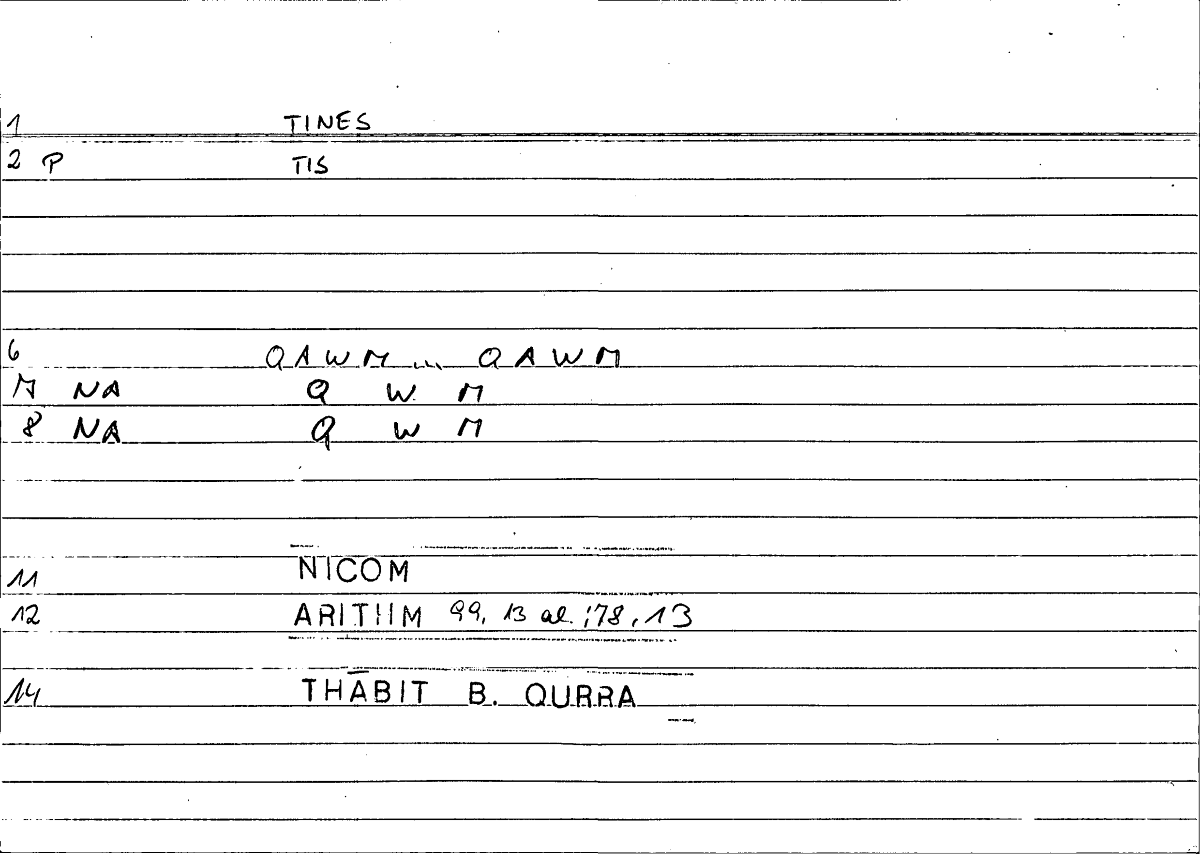 1 TINES
2 P TIS
6 QAWM ... QAWM
7 NA Q W M
8 NA Q W M
11 NICOM
12 ARITHM 99, 13 al. 178, 13
14 THĀBIT B. QURRA